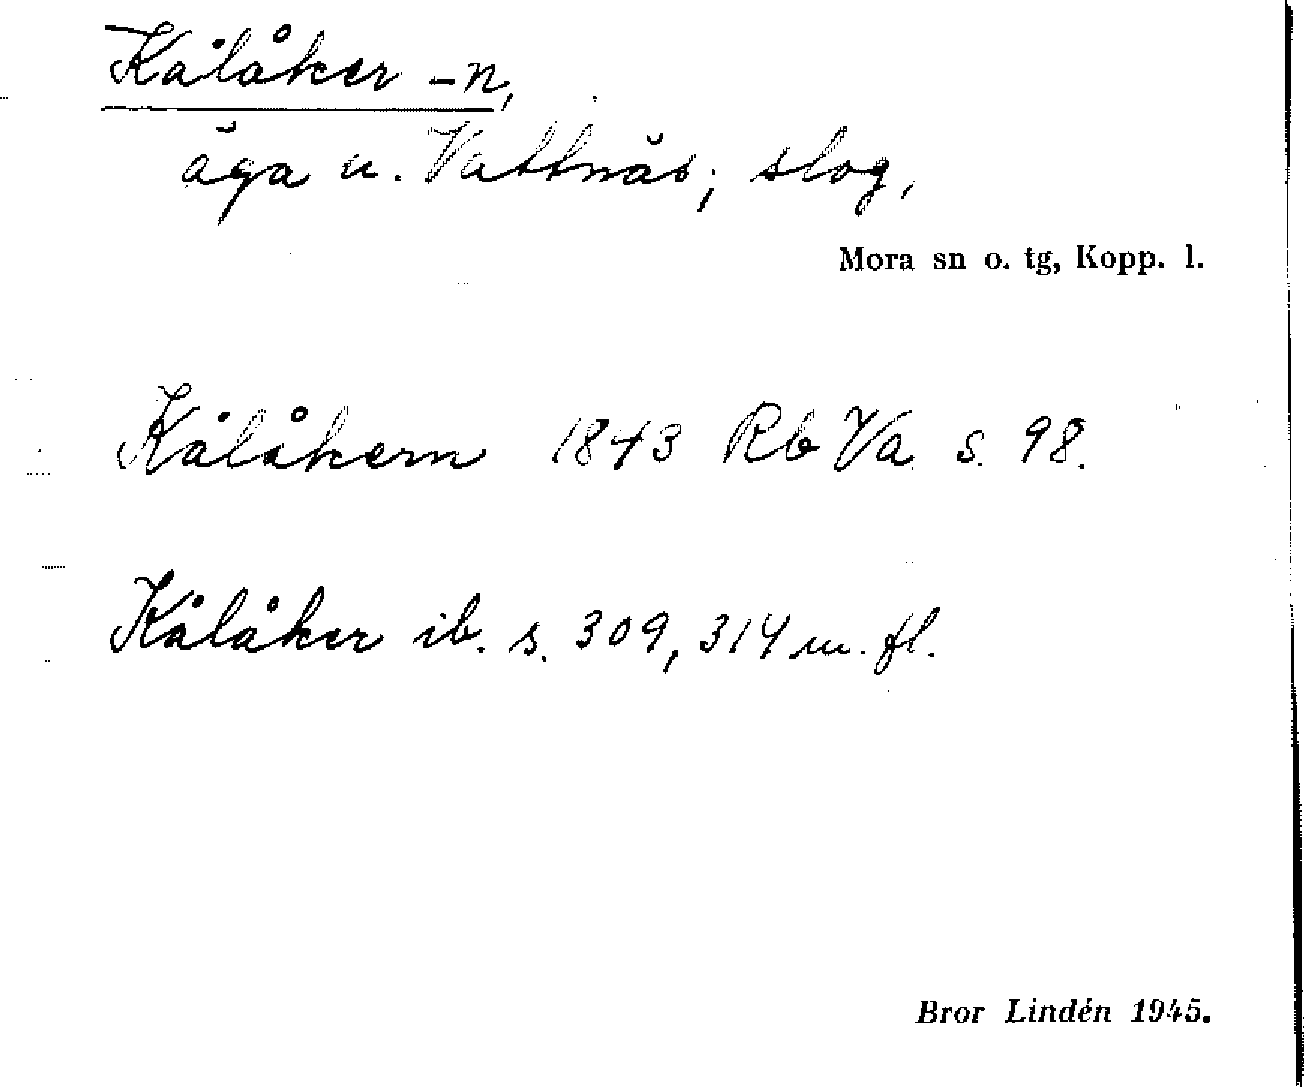 Kålåker -n,
äga u. Vattnäs; slog,
Mora sn o. tg, Kopp. l.
Kålåkern 1843 Rb Va s. 98.
Kålåker ib. s. 309, 314 m. fl.
Bror Lindén 1945.